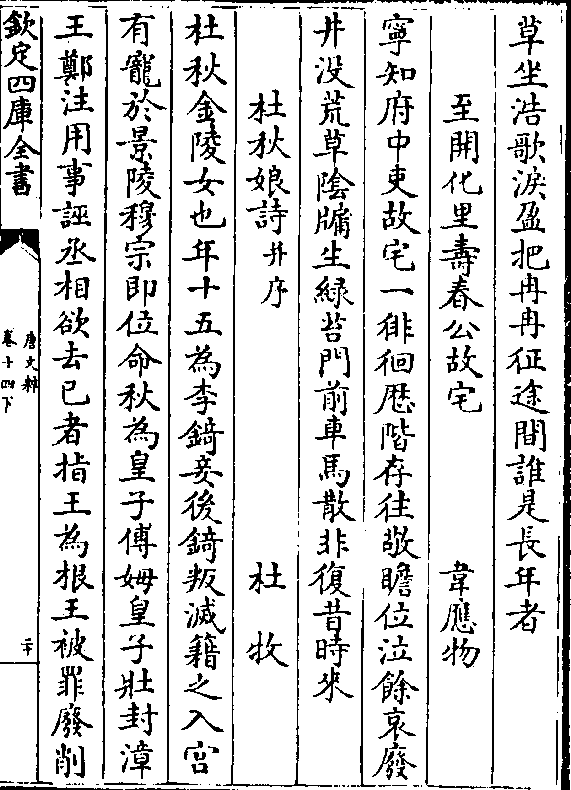 草坐浩歌淚盈把冉冉征途間誰是長年者
至開化里壽春公故宅 韋應物
寧知府中吏故宅一徘徊歴階存往敬瞻位泣餘哀廢
井没荒草陰牗生緑苔門前車馬散非復昔時來
杜秋娘詩并序 杜牧
杜秋金陵女也年十五為李錡妾後錡叛滅籍之入宫
有寵於景陵穆宗即位命秋為皇子傅姆皇子壯封漳
王鄭注用事誣丞相欲去已者指王為根王被罪廢削
欽定四庫全書
唐文粹
卷十四下
二十